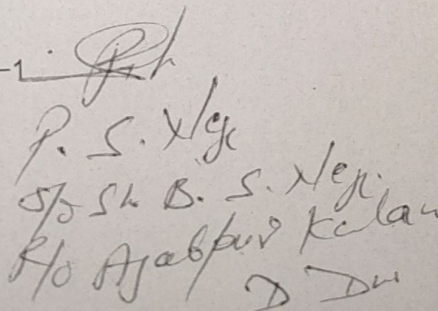 -1
P. S. Negi
S/o Sh. B. S. Negi.
R/o Ajabpur Kalan
D Dun